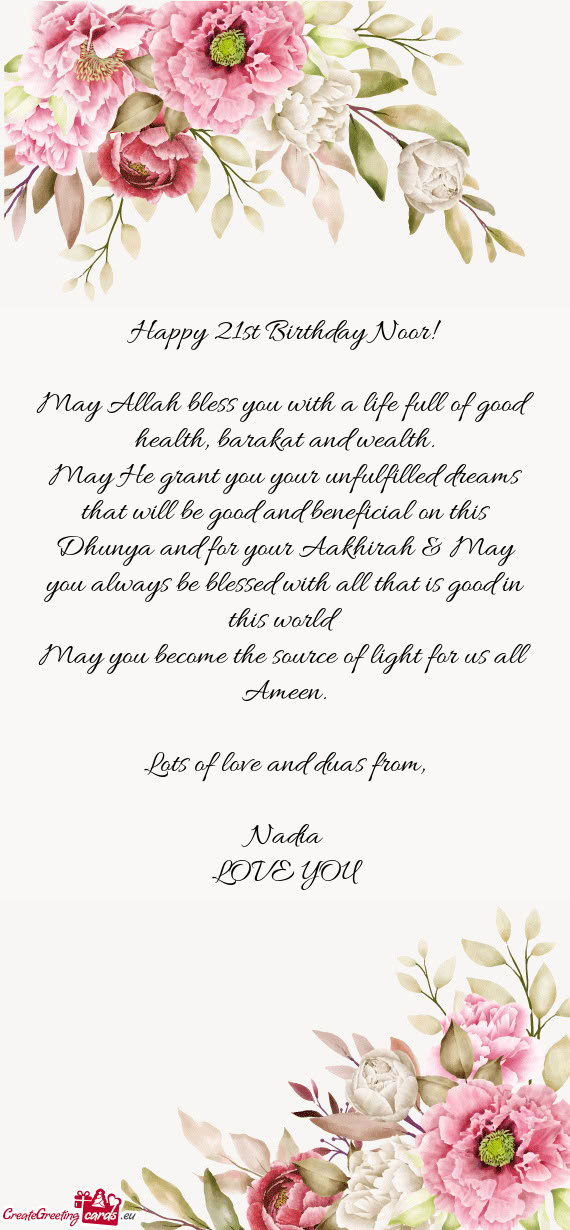 Happy 21st Birthday Noor!
May Allah bless you with a life full of good
health, barakat and wealth.
May He grant you your unfulfilled dreams
that will be good and beneficial on this
Dhunya and for your Aakhirah & May
you always be blessed with all that is good in
this world
May you become the source of light for us all
Ameen.
Lots of love and duas from,
Nadia
LOVE YOU
CreateGreeting cards .eu